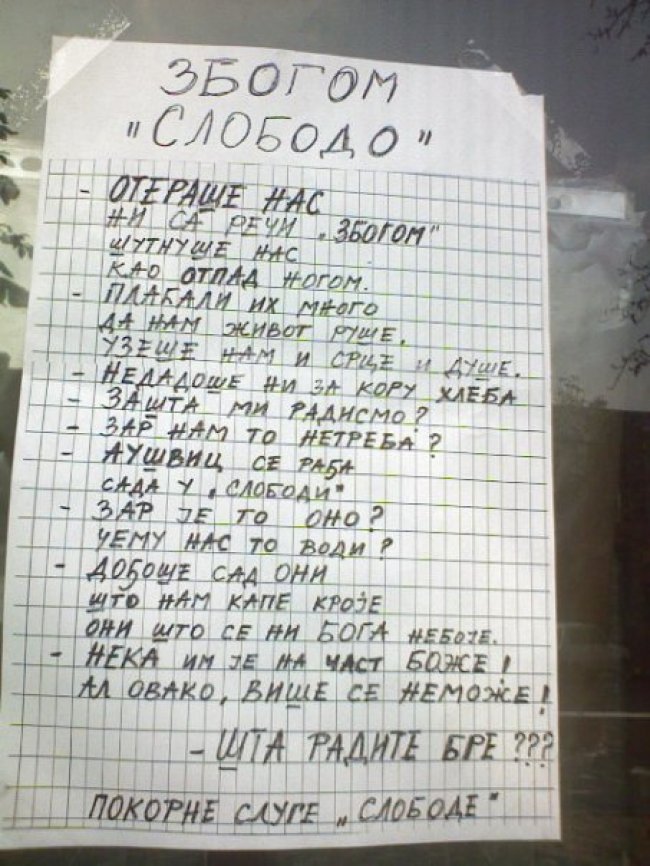 ЗБОГОМ
"СЛОБОДО"
- ОТЕРАШЕ НАС
НИ СА РЕЧИ „ЗБОГОМ"
ШУТНУШЕ НАС
КАО ОТПАД НОГОМ.
- ПЛАКАЛИ ИХ МНОГО
ДА НАМ ЖИВОТ РУШЕ.
УЗЕШЕ НАМ И СРЦЕ И ДУШЕ.
- НЕДАДОШЕ НИ ЗА КОРУ ХЛЕБА
- ЗАШТА МИ РАДИСМО?
- ЗАР НАМ ТО НЕТРЕБА?
- АУШВИЦ СЕ РАЂА
САДА У „СЛОБОДИ"
- ЗАР ЈЕ ТО ОНО?
ЧЕМУ НАС ТО ВОДИ?
- ДОЂОШЕ САД ОНИ
ШТО НАМ КАПЕ КРОЈЕ
ОНИ ШТО СЕ НИ БОГА НЕБОЈЕ.
- НЕКА ИМ ЈЕ НА ЧАСТ БОЖЕ!
АЛ ОВАКО, ВИШЕ СЕ НЕМОЖЕ!
- ШТА РАДИТЕ БРЕ ???
ПОКОРНЕ СЛУГЕ „СЛОБОДЕ"